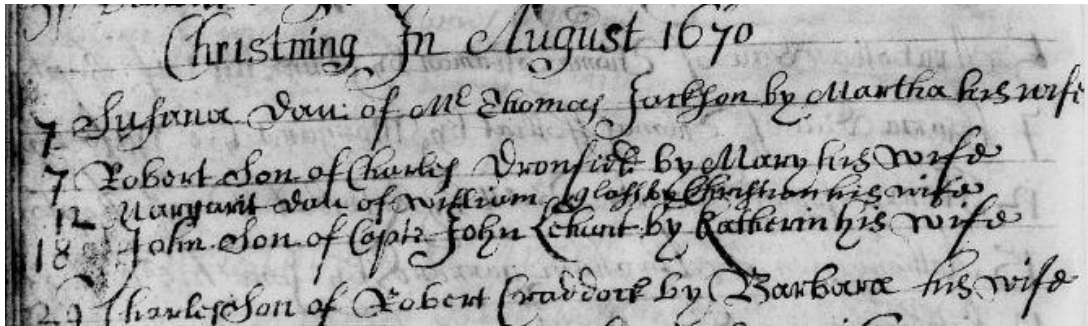 Christning In August 1670
7 Susana dau: of Mr Thomas Jackson by Martha his wife
7 Robert Son of Charles Dronfield by Mary his wife
12 Margarit dau of william glass by Christian his wife
18 John Son of Capt: John Lehunt by Katherin his wife
29 Charles Son of Robert Craddock by Barbara his wife